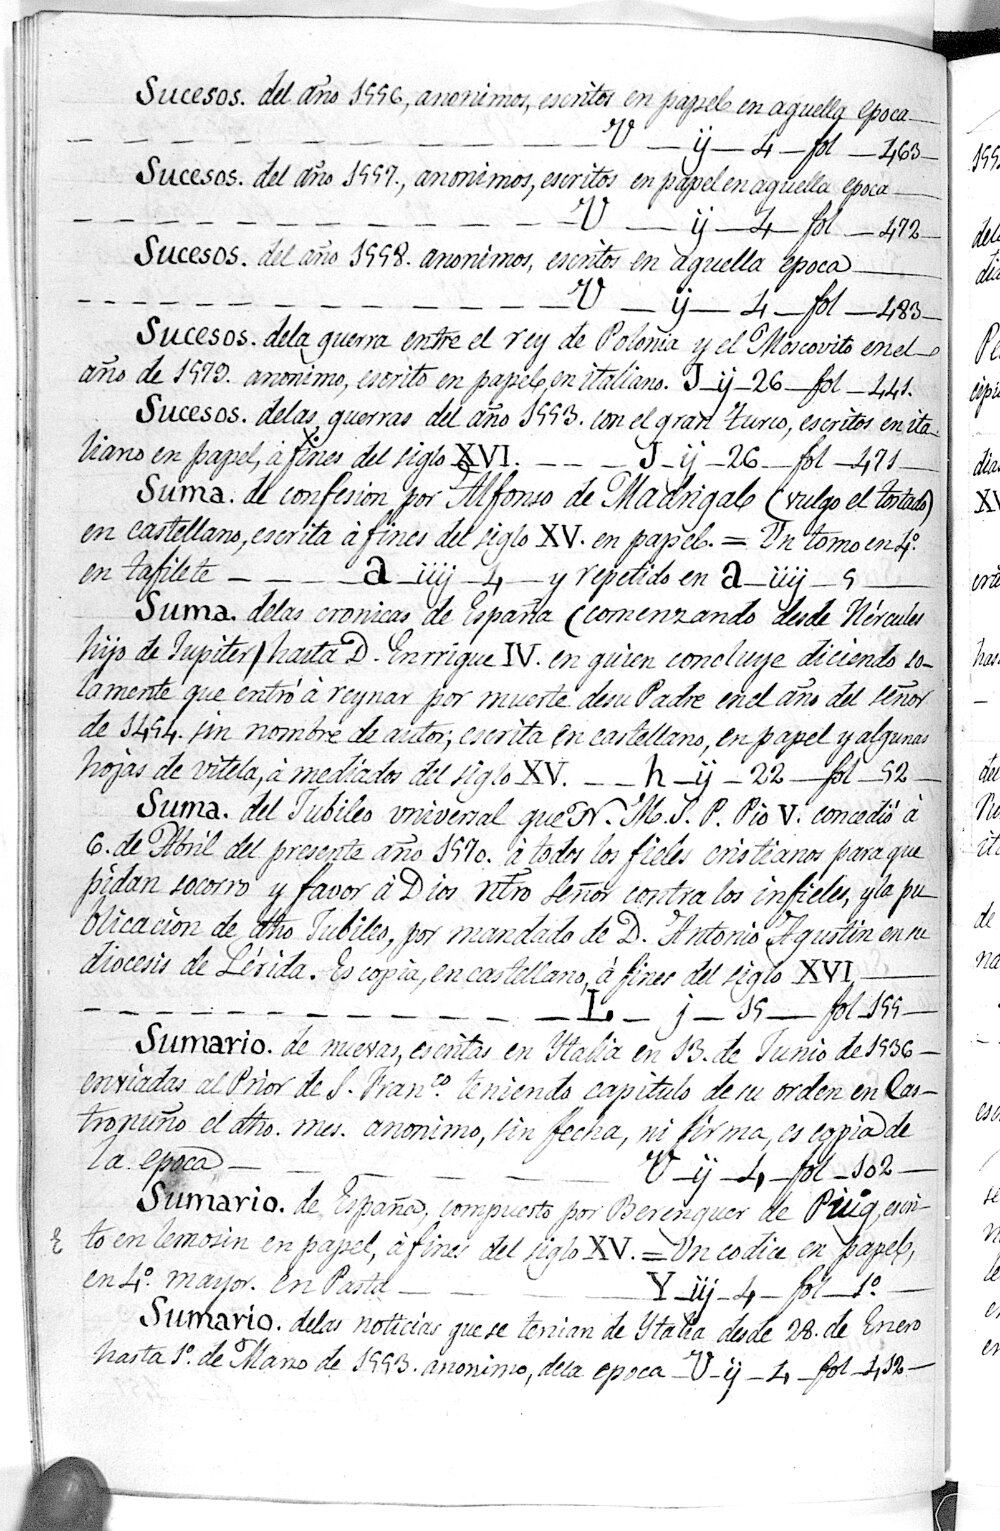 Sucesos. del año 1556, anonimos, escritos en papel en aquella epoca
V — ij — 4 — fol — 463
Sucesos. del año 1557., anonimos, escritos en papel en aquella epoca
V — ij — 4 — fol — 472
Sucesos. del año 1558. anonimos, escritos en aquella epoca
V — ij — 4 — fol — 483
Sucesos. dela guerra entre el rey de Polonia y el Moscovito en el
año de 1579. anonimo, escrito en papel, en italiano. J — ij — 26 — fol — 441.
Sucesos. delas guerras del año 1553. con el gran turco, escritos en ita-
liano en papel, à fines del siglo XVI. — — — J — ij — 26 — fol — 471
Suma. de confesion por Alfonso de Madrigal (vulgo el tostado)
en castellano, escrita à fines del siglo XV. en papel. = Un tomo en 4º.
en tafilete — — — — a — iiij — 4 — y repetido en a — iiij — 5
Suma. delas cronicas de España (comenzando desde Hércules
hijo de Jupiter) hasta D. Enrrique IV. en quien concluye diciendo so-
lamente que entró à reynar por muerte desu Padre en el año del señor
de 1454. sin nombre de autor, escrita en castellano, en papel y algunas
hojas de vitela, à mediados del siglo XV. — — h — ij — 22 — fol — 52
Suma. del Jubileo vniversal que N. M. S. P. Pio V. concedió à
6. de Abril del presente año 1570. à todos los fieles cristianos para que
pidan socorro y favor à Dios ntro señor contra los infieles, y la pu
blicacion de dho Jubileo, por mandado de D. Antonio Agustin en su
diocesis de Lérida. Es copia, en castellano, à fines del siglo XVI
L. — j — 15 — fol — 155
Sumario. de nuevas, escritas en Ytalia en 13. de Junio de 1536
enviadas al Prior de S. Franco. teniendo capitulo de su orden en Cas-
tronuño el dho. mes. anonimo, sin fecha, ni firma, es copia de
la epoca — V — ij — 4 — fol — 102
Sumario. de España, compuesto por Berenguer de Puig, escri-
to en lemosin en papel, à fines del siglo XV. = Un codice en papel,
en 4º. mayor. en Pasta — Y — iij — 4 — fol — 1º.
Sumario. delas noticias que se tenian de Ytalia desde 28. de Enero
hasta 1º. de Marzo de 1553. anonimo, dela epoca — V — ij — 4 — fol — 412